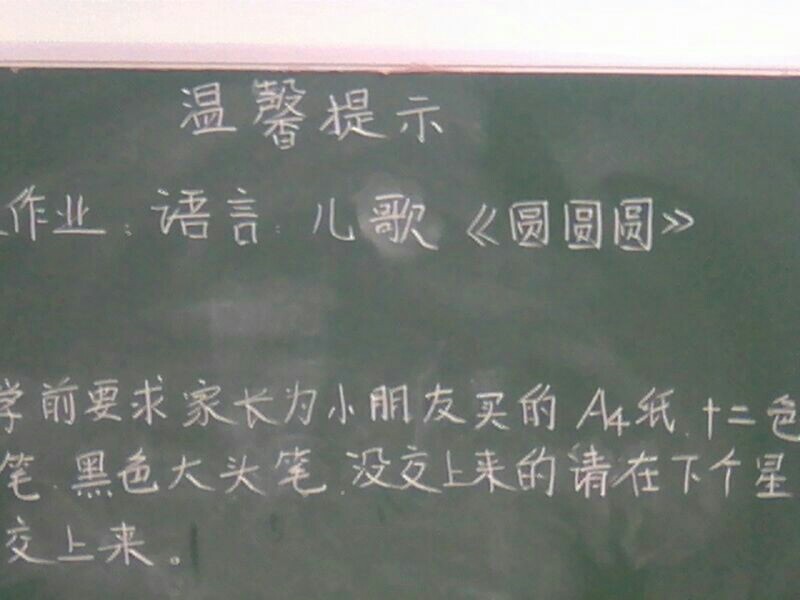 温馨提示
作业:语言:儿歌《圆圆圆》
学前要求家长为小朋友买的A4纸、十二色
笔、黑色大头笔、没交上来的请在下个星
交上来。